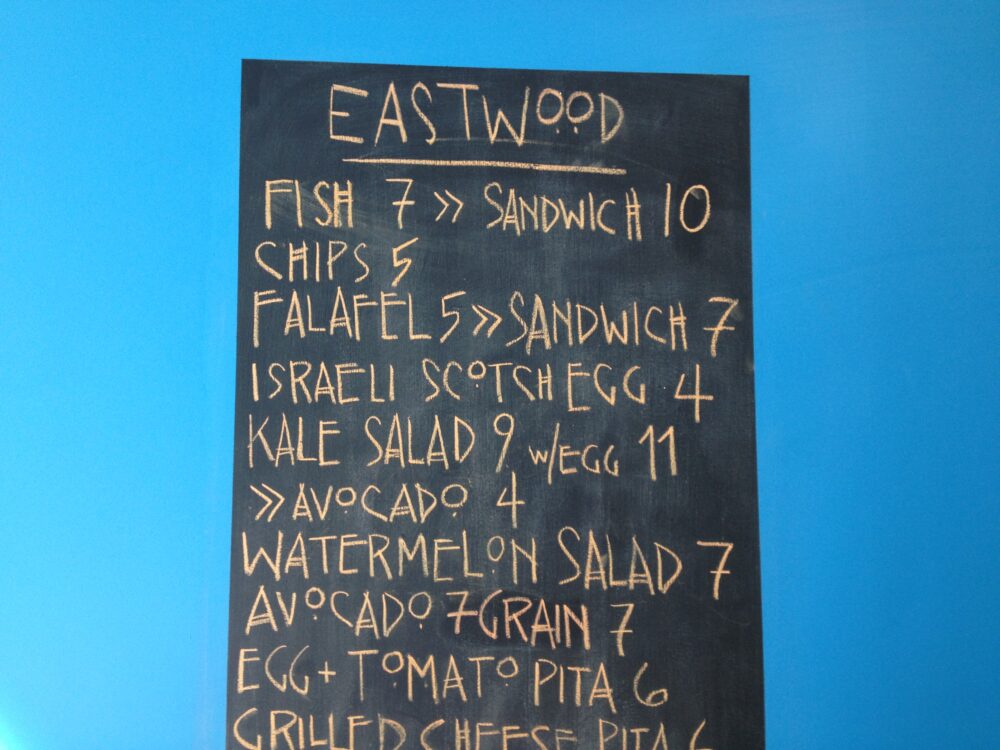 EASTWOOD
FISH 7 >> SANDWICH 10
CHIPS 5
FALAFEL 5 >> SANDWICH 7
ISRAELI SCOTCH EGG 4
KALE SALAD 9 w/EGG 11
>> AVOCADO 4
WATERMELON SALAD 7
AVOCADO 7GRAIN 7
EGG + TOMATO PITA 6
GRILLED CHEESE PITA 6